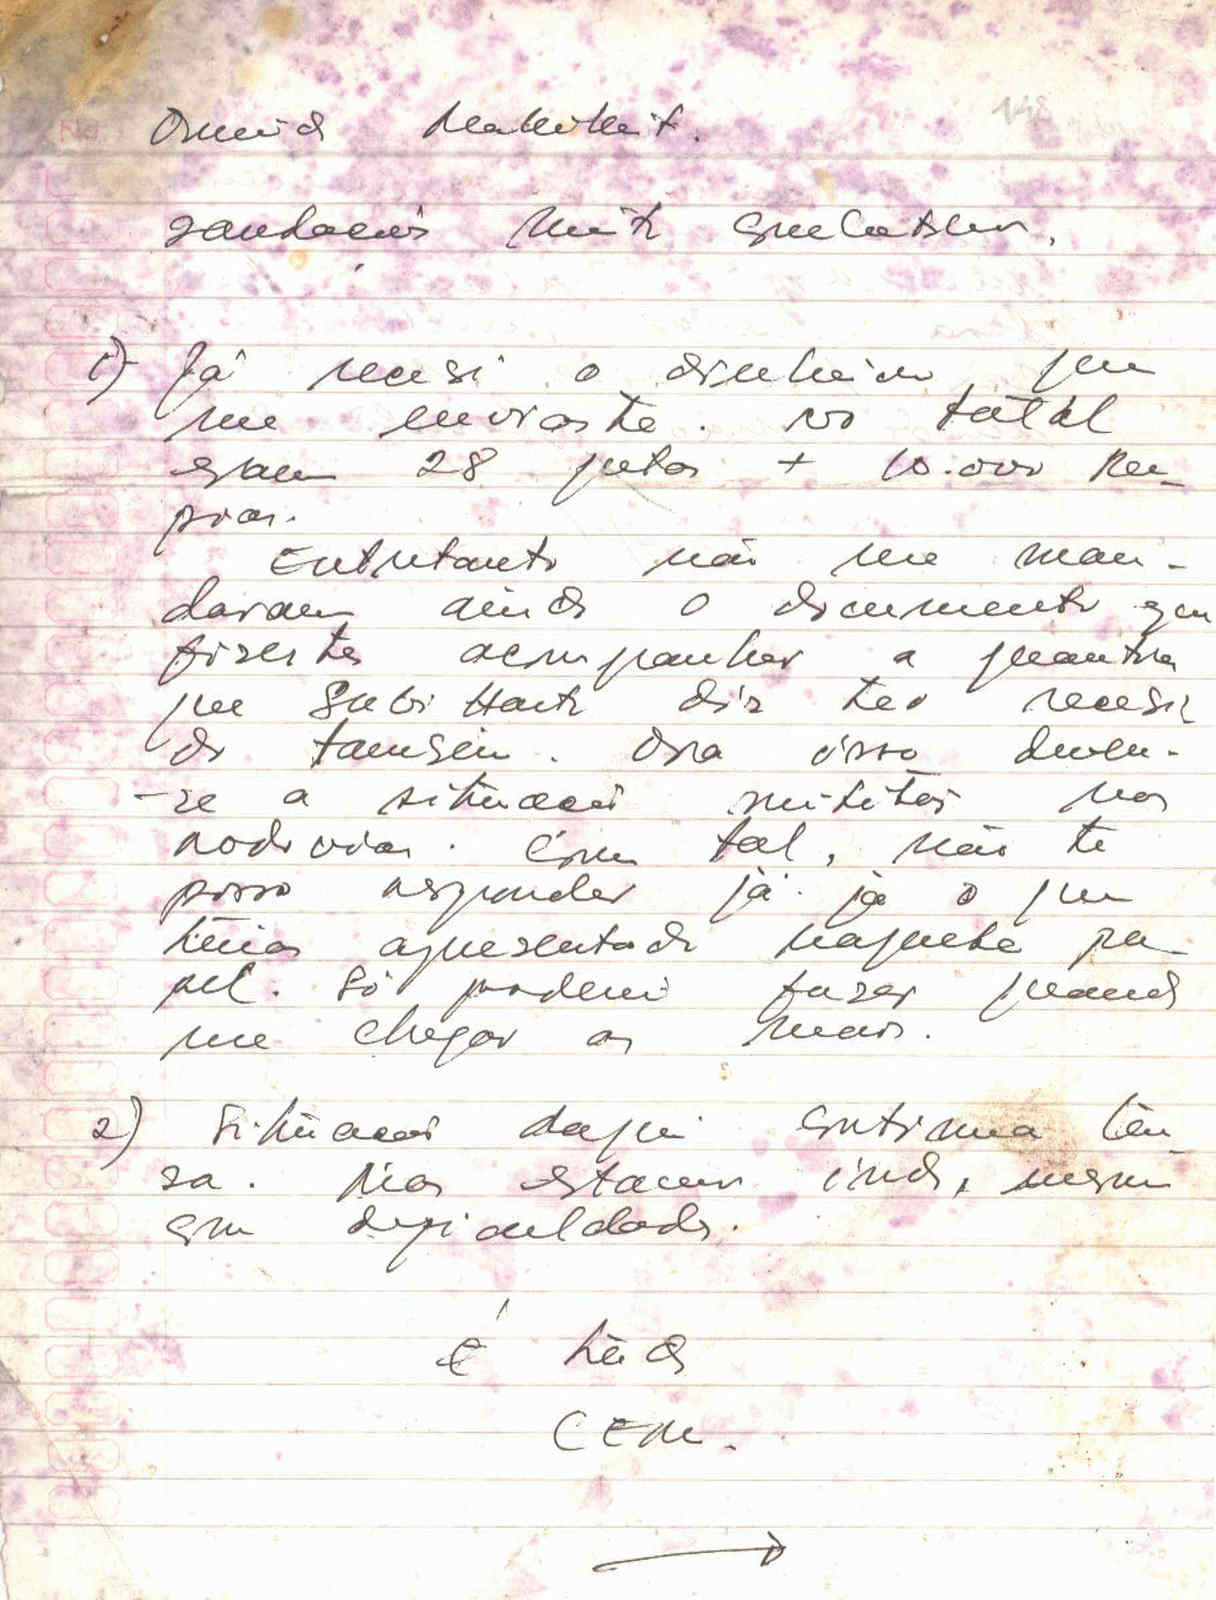 saudações muito
1) Já recebi o dinheiro que
me enviaste. No total
eram 28 juta + 10.000 Ru-
pias.
Entretanto não me man-
daram ainda o documento que
fizestes acompanhar a quantia
que Bubi Hart diz ter recebi
do também. Ora isso deveu-
-se a situação militar nas
rodovias. Com tal, não te
posso responder já já o que
tinhas apresentado naquele pa
pel. Só poderei fazer quando
me chegar as mãos.
2) Situação daqui continua ten
sa. Mas estamos ainda, mesmo
com dificuldade.
É tudo
CEM.